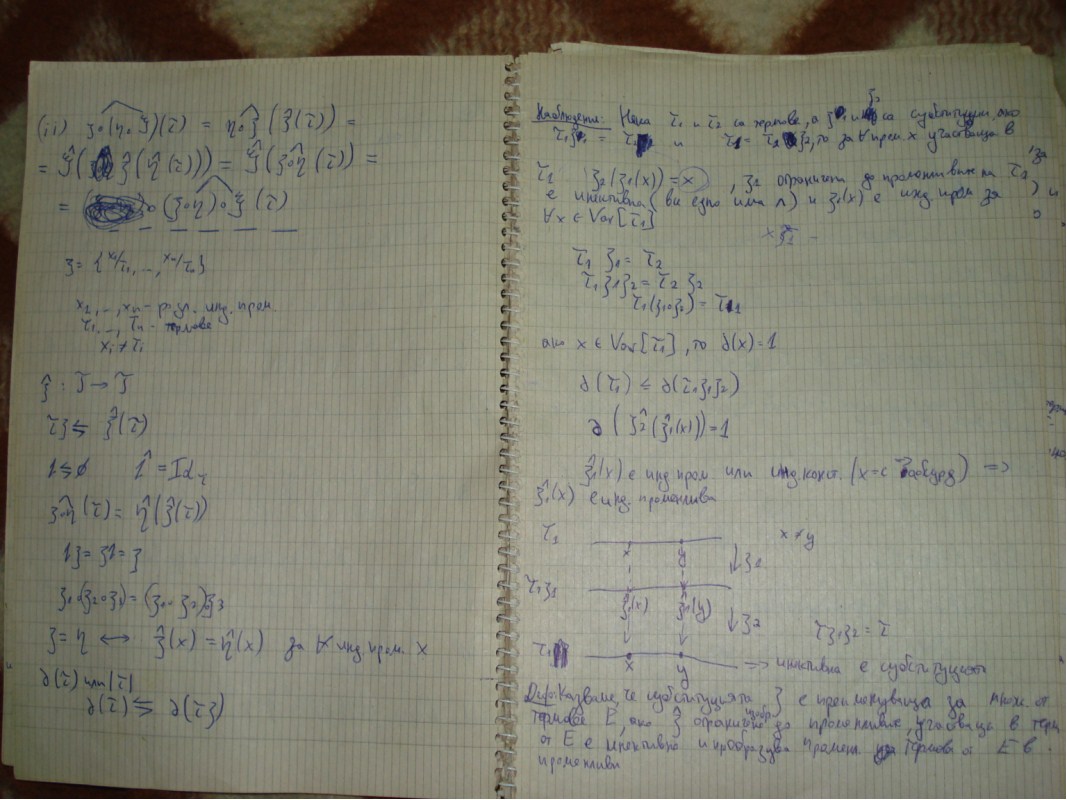 (ii) ξ∘(η∘ζ)(τ) = η∘ζ (ξ̂(τ)) =
= ζ̂( η̂(ξ̂(τ))) = ζ̂(ξ∘η (τ)) =
= (ξ∘η)∘ζ (τ)
ξ = {x₁/τ₁, ..., xₙ/τₙ}
x₁, .., xₙ - разл. инд. пром.
τ₁, .., τₙ - термове
xᵢ ≠ τᵢ
ξ̂ : T → T
τξ ≤ ξ̂(τ)
ι ≤ ∅ ι̂ = Id
ξ∘η (τ) = η̂(ξ̂(τ))
ιξ = ξι = ξ
ξ₁∘(ξ₂∘ξ₃) = (ξ₁∘ξ₂)∘ξ₃
ξ = η ↔ ξ̂(x) = η̂(x) за ∀ инд. пром. x
∂(τ) или |τ|
∂(τ) ≤ ∂(τξ)
Наблюдение: Нека τ₁ и τ₂ са термове, а ξ₁ и ξ₂ са субституции, ако
τ₁ξ₁ = τ₂ и τ₁ = τ₂ξ₂, то за ∀ пром. x участваща в
τ₁ ξ₂(ξ₁(x)) = x , ξ₁ ограничен до променливите на τ₁
е инективна ( ) и ξ₁(x) е инд. пром за
∀x ∈ Var[τ₁]
τ₁ ξ₁ = τ₂
τ₁ξ₁ξ₂ = τ₂ ξ₂
τ₁(ξ₁∘ξ₂) = τ₁
ако x ∈ Var[τ₁], то ∂(x) = 1
∂(τ₁) ≤ ∂(τ₁ξ₁ξ₂)
∂(ξ̂₂(ξ̂₁(x))) = 1
ξ̂₁(x) е инд. пром. или инд. конст. (x = c абсурд) =>
ξ̂₁(x) е инд. променлива
τ₁ x y ξ₁ x ≠ y
τ₁ξ₁ ξ̂₁(x) ξ̂₁(y) ξ₂
τξ₁ξ₂ = τ
τ₁ x y => инективна е субституцията
Деф: Казваме, че субституцията ξ е преименуваща за множ. от
термове E, ако ξ̂ ограничено до променливите, участващи в терм
от E е инективна и преобразува промен. на термове от E в
променливи